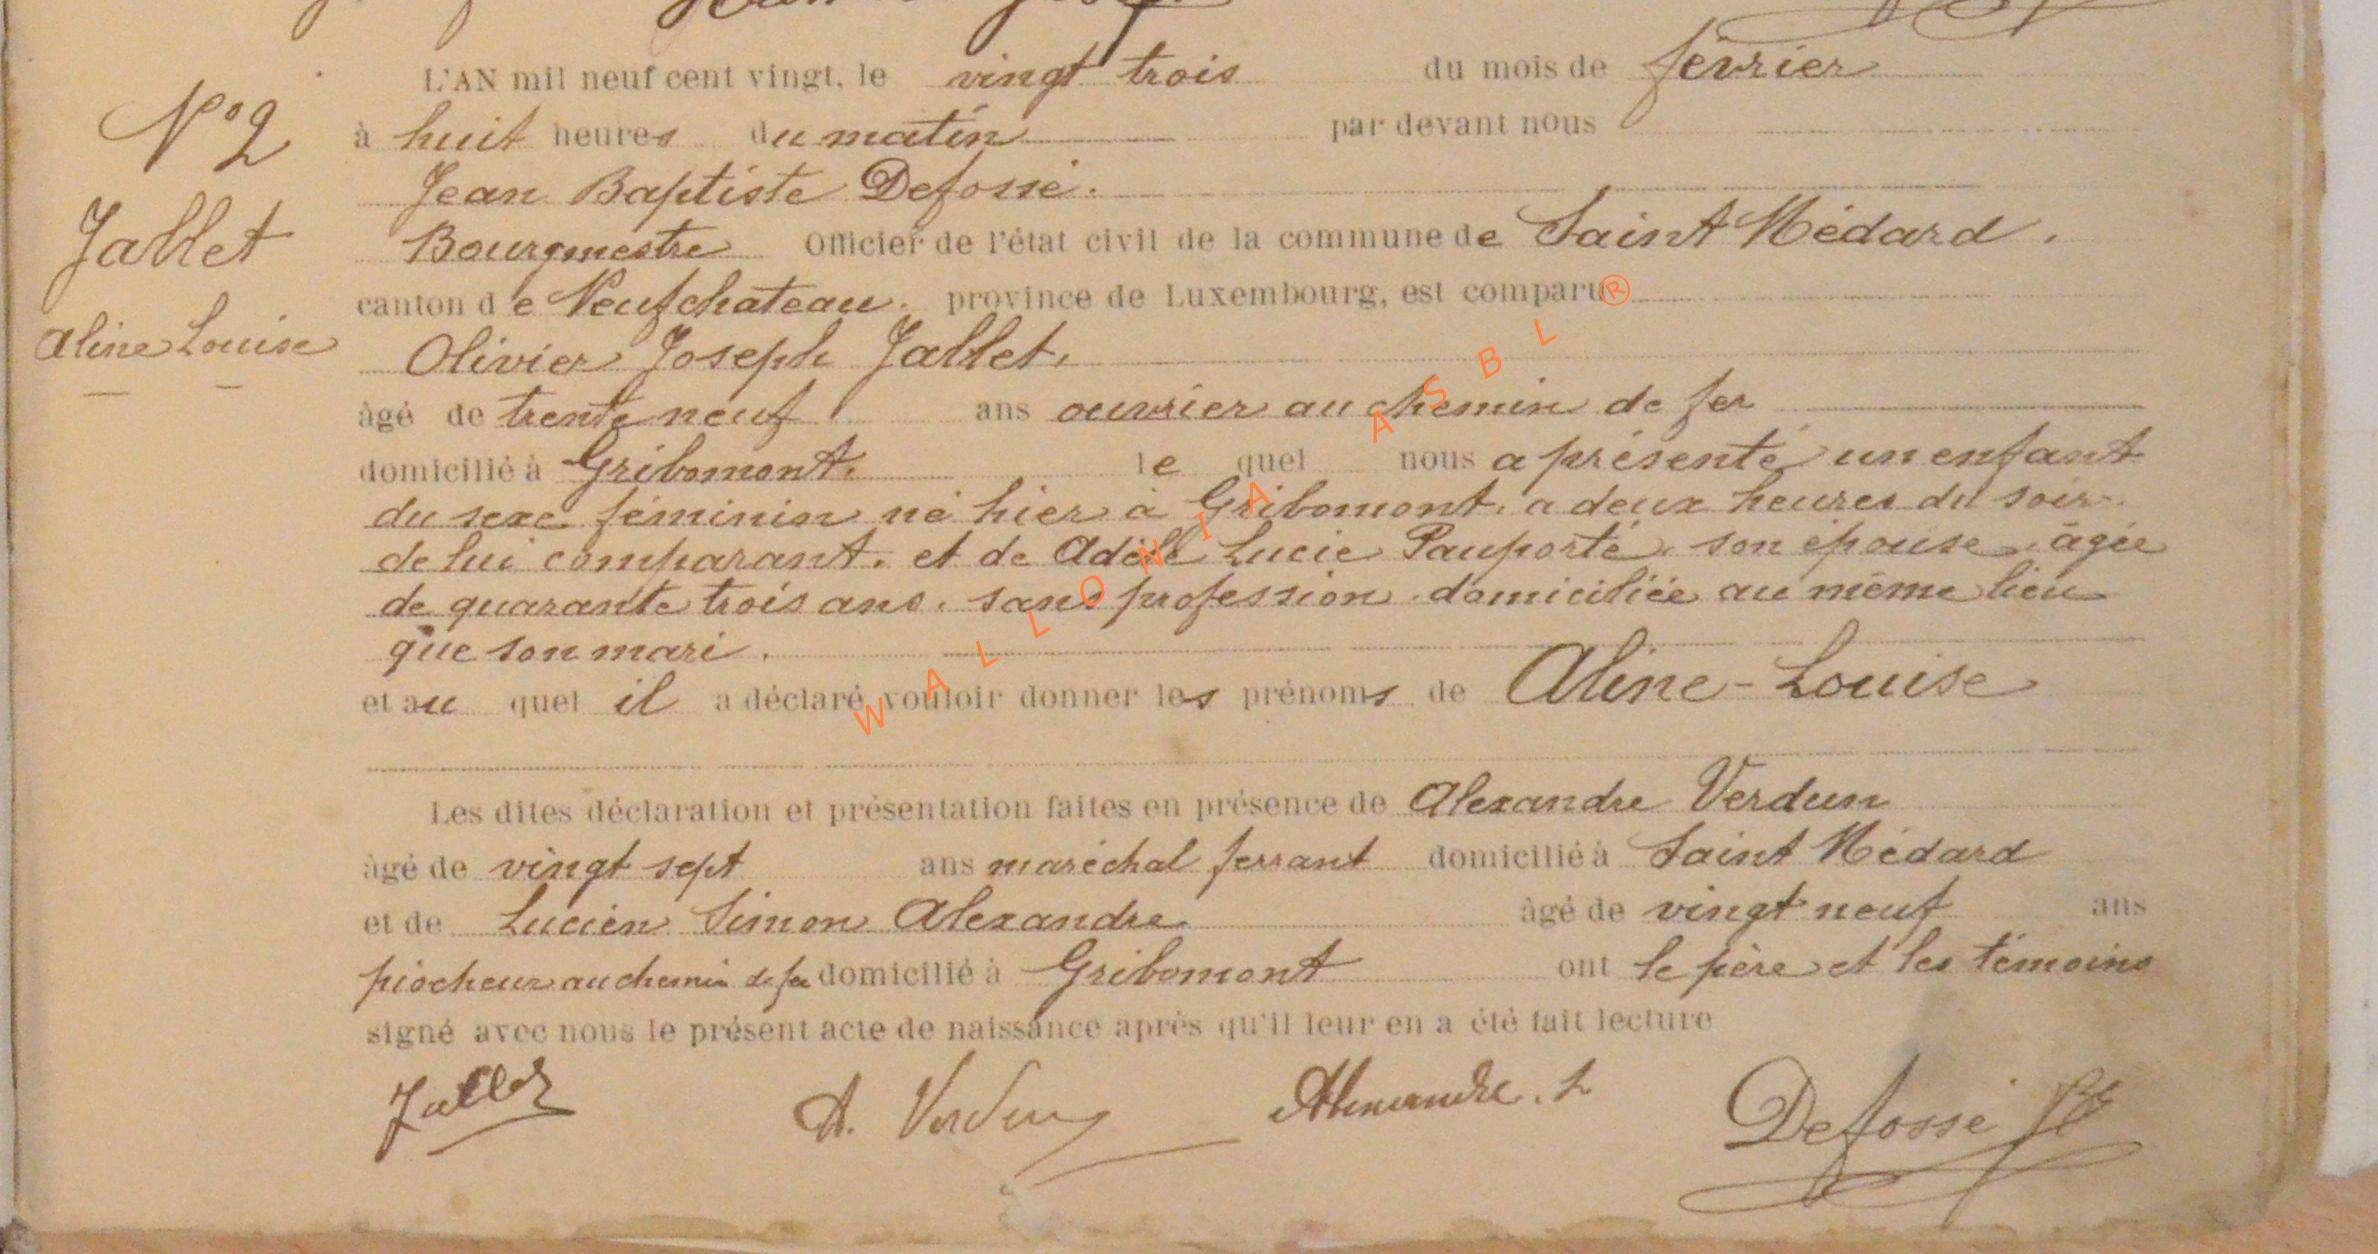 L'AN mil neuf cent vingt, le vingt trois du mois de février
N° 2
à huit heures du matin par devant nous
Jean Baptiste Defossé.
Jallet
Bourgmestre Officier de l'état civil de la commune de Saint Médard.
canton de Neufchateau. province de Luxembourg, est comparu
Aline Louise
Olivier Joseph Jallet,
âgé de trente neuf ans ouvrier au chemin de fer
domicilié à Gribomont. le quel nous a présenté un enfant
du sexe féminin né hier à Gribomont. a deux heures du soir.
de lui comparant. et de Adèle Lucie Pauporté. son épouse. âgée
de quarante trois ans. sans profession. domiciliée au même lieu
que son mari.
et au quel il a déclaré vouloir donner les prénoms de Aline-Louise
Les dites déclaration et présentation faites en présence de Alexandre Verdun
âgé de vingt sept ans maréchal ferrant domicilié à Saint Médard
et de Lucien Simon Alexandre âgé de vingt neuf ans
piocheur au chemin de fer domicilié à Gribomont ont le père et les témoins
signé avec nous le présent acte de naissance après qu'il leur en a été fait lecture
Jallet A. Verdun Alexandre. L Defossé JB
WALLONIA ASBL ®